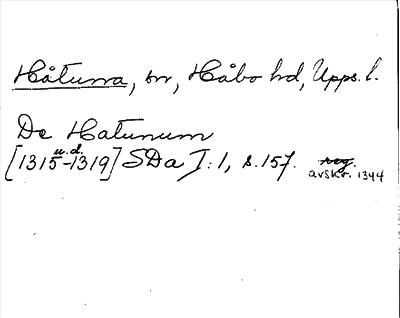 Håtuna, sn, Håbo hd, Upps. l.
De Hatunum
u.d.
[1315-1319] SDa I:1, s.157. reg.
avskr. 1344